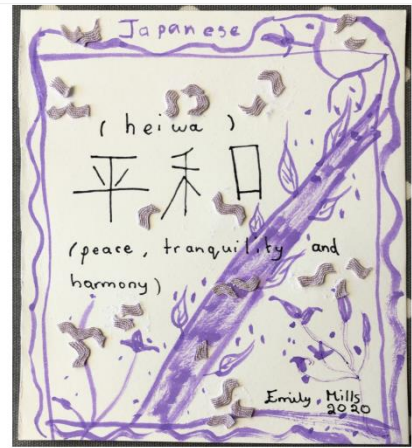 Japanese
(heiwa)
平和
(peace, tranquility and
harmony)
Emily Mills
2020